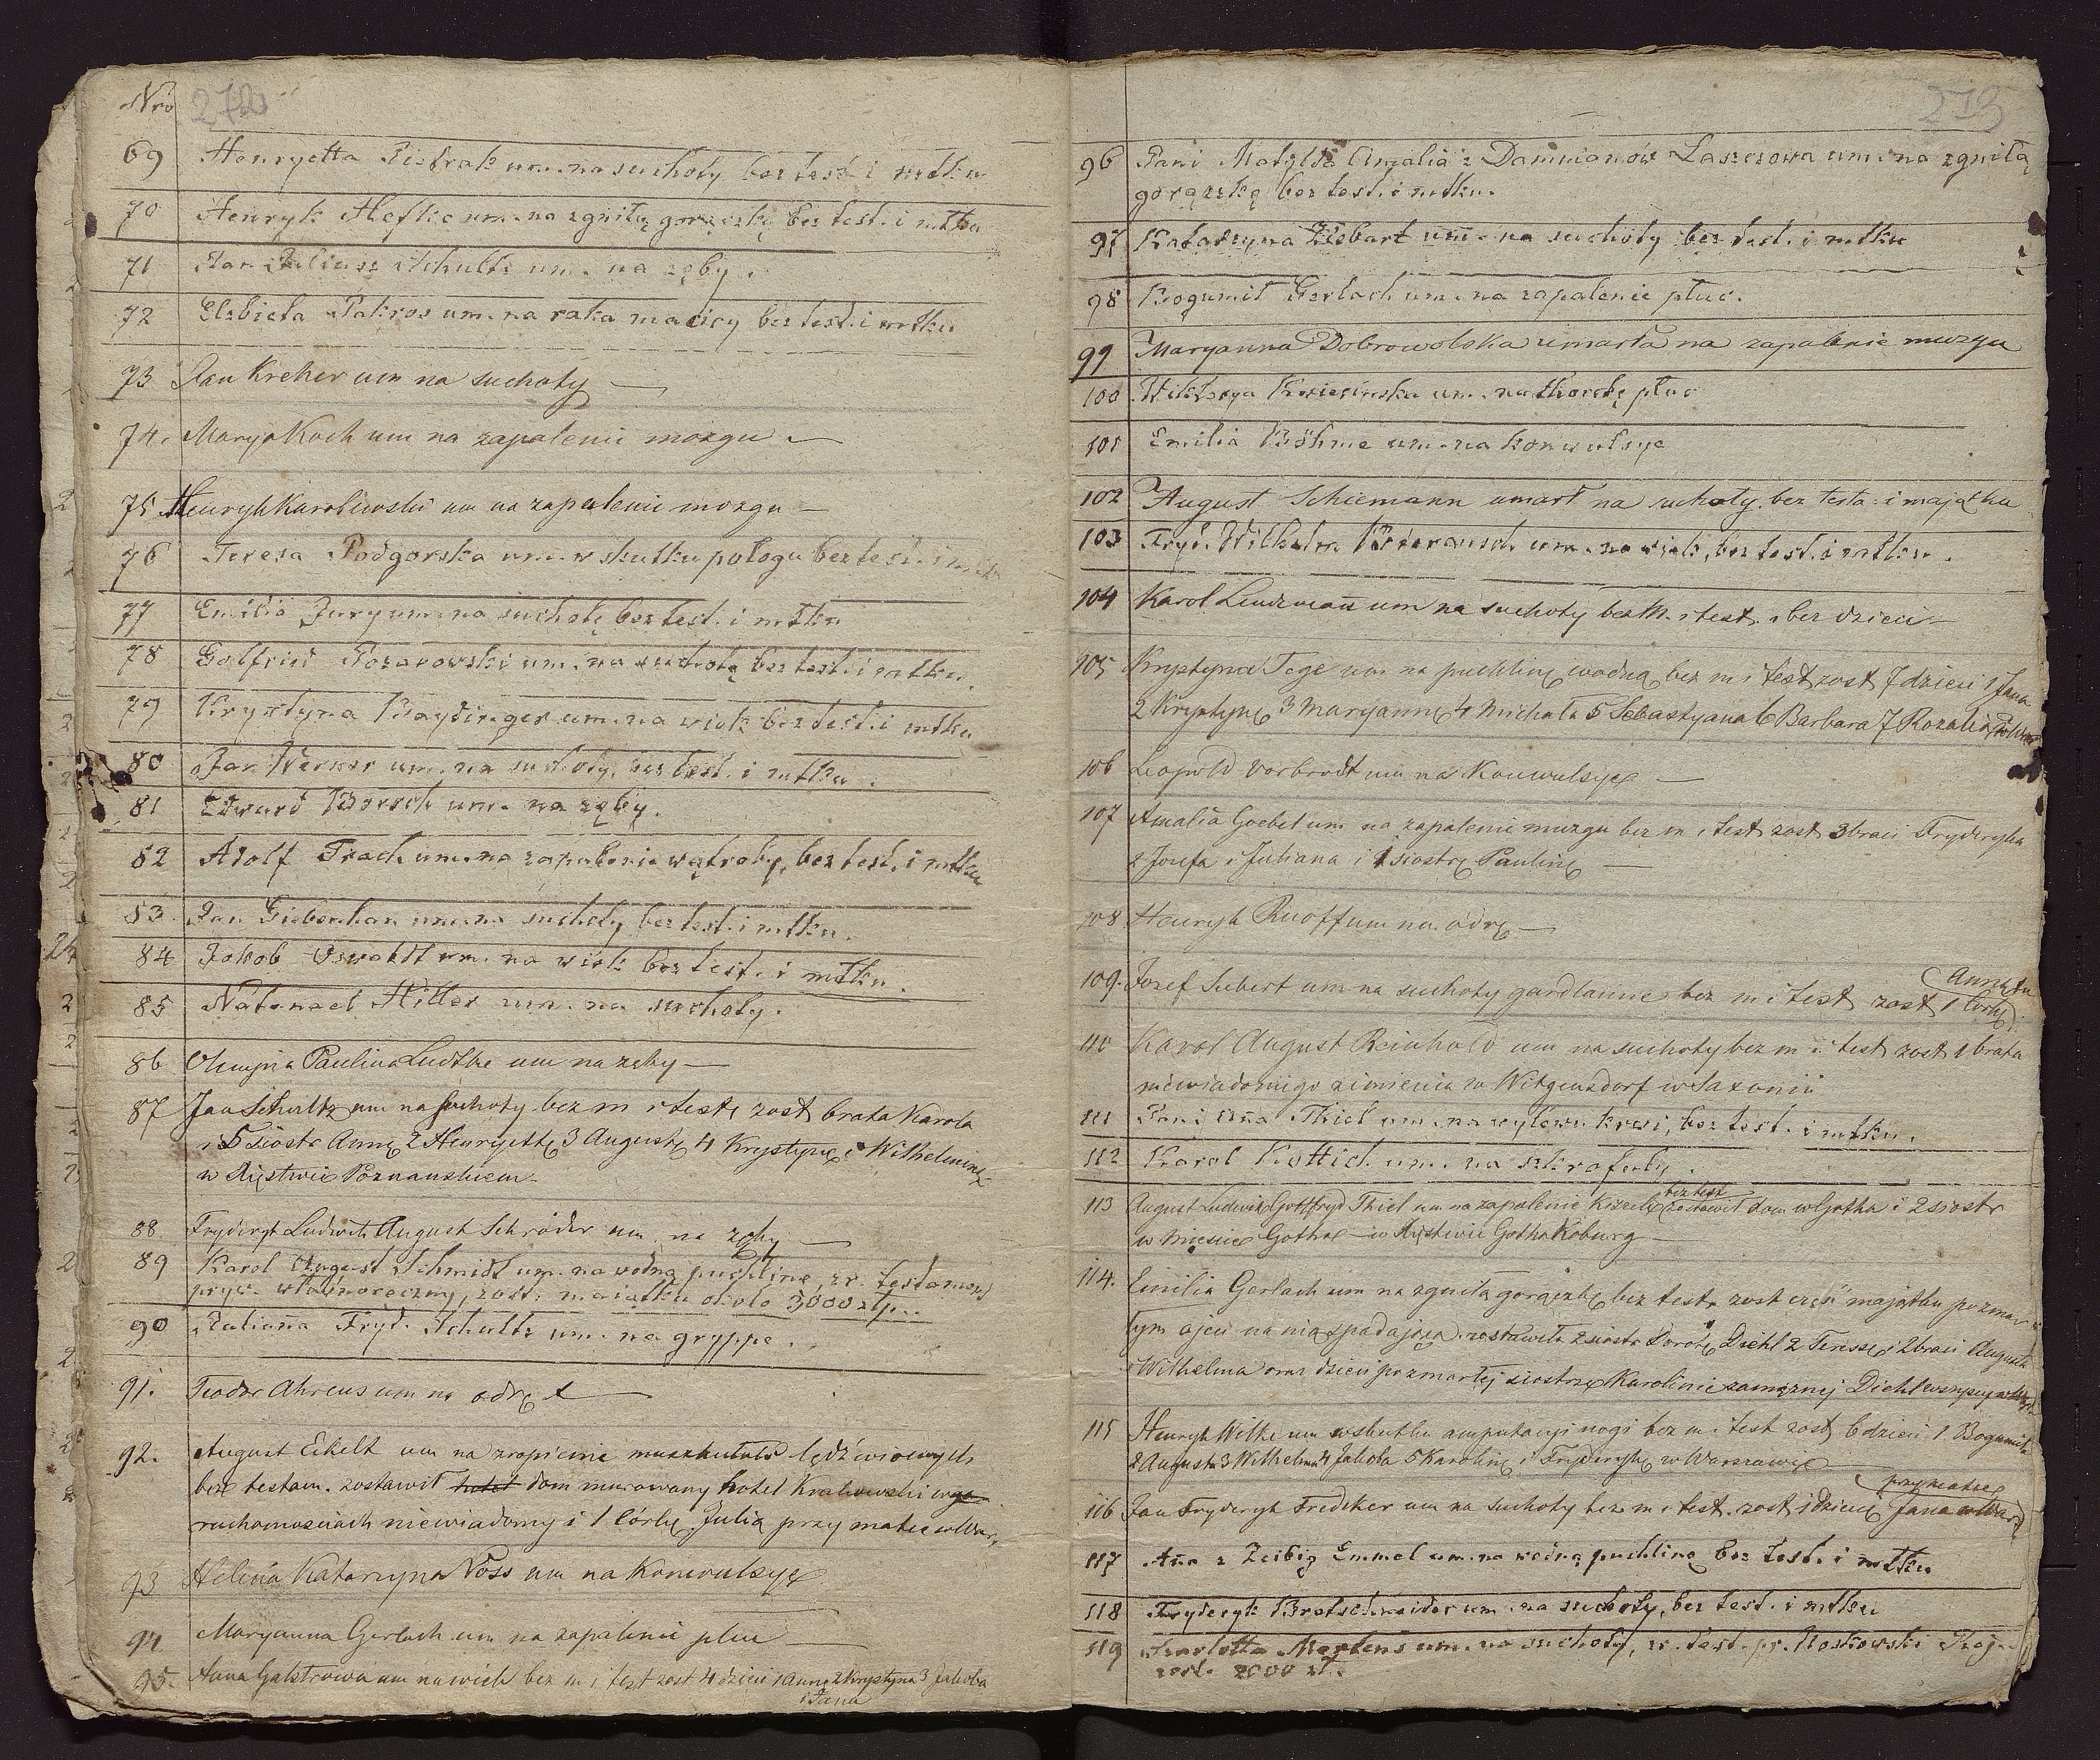 Nro 272
69 Henryetta Pietrak um. na suchoty bez test. i mtku
70 Henryk Hefke um. na zgniłą gorączkę bez test. i mtku
71 Jan Juliusz Schultz um. na zęby.
72 Elżbieta Pakros um. na raka macicy bez test. i mtku
73 Jan Kreher um na suchoty —
74. Marya Koch um na zapalenie mozgu —
75 Henryk Karolewski um na zapalenie mozgu —
76 Teresa Podgorska um. w skutku połogu bez test. i mtk
77 Emilia Jury um. na suchotę bez test. i mtku
78 Gotfried Pozarowski um. na suchotę bez test. i mtku.
79 Krystyna Baydinger um. na wiek bez test. i mtku
80 Jan Werner um. na suchoty, bez test. i mtku.
81 Edward Borsch um. na zęby.
82 Adolf Trach um. na zapalenie wątroby, bez test. i mtku
83. Jan Giebenhan um. na suchoty bez test. i mtku.
84 Jakob Oswaldt um. na wiek bez test. i mtku.
85 Natanael Hiller um. na suchoty.
86 Olimpia Paulina Ludtke um na zęby —
87 Jan Schultz um na suchoty bez m i testr zost brata Karola
i 5 siostr Annę 2 Henryettę 3 Augustę 4 Krystynę i Wilhelminę
w Xięstwie Poznanskiem —
88 Fryderyk Ludwik August Schröder um na zęby —
89 Karol August Schmidt um. na wodną puchlinę, zr. testament
pryw. własnoręczny, zost. maiątku około 3000 złp.
90 Julianna Fryd. Schultz um. na gryppe.
91. Teodor Ahrens um na odrę —
92. August Eikelt um na zropienie muszkułów lędźwiowych
bez testam. zostawił hotel dom murowany hotel Krakowski w
ruchomosciach niewiadomy i 1 córkę Julią przy matce w War,
93 Helena Katarzyna Voss um na Konwulsye
94 Maryanna Gerlach um na zapalenie płuc —
95. Anna Galstrowa um na wiek bez m i test zost 4 dzieci 1 Annę 2 Krystyna 3 Jakoba
i Jana
273
96 Pani Matylda Amalia z Dammanów Laszczowa um. na zgniłą
gorączkę bez test. i mtku.
97 Katarzyna Ziebart um. na suchoty bez test. i mtku
98 Bogumił Gerlach um. na zapalenie płuc.
99 Maryanna Dobrowolska umarła na zapalenie muzgu
100 Wiktorya Kwiecińska um. na chorobę płuc
101 Emilia Böhme um. na konwulsye
102 August Schiemann umarł na suchoty. bez testa: i majątku
103 Fryd. Wilhelm Biderausch um. na wiek, bez test. i mtku.
104 Karol Lindemann um na suchoty bez M. i test. i bez dzieci —
105 Krystyna Tege um na puchlinę wodną bez m i test zost 7 dzieci 1 Jana
2 Krystynę 3 Maryannę 4 Michała 5 Sebastyana 6 Barbara 7 Rozalią
106 Leopold Vorbrodt um na Konwulsye —
107 Amalia Goebel um na zapalenie muzgu bez m i test zost 3 braci Fryderyka
2 Jozefa i Juliana i 1 siostrę Paulinę —
108 Henryk Ruoff um na odrę —
109. Jozef Subert um na suchoty gardlanne bez m i test zost 1 Corkę
Annę tu
110 Karol August Reinhold um na suchoty bez m i test zost 1 brata
niewiadomego zimienia w Witgensdorf w Saxonii
111 Pani Anna Thiel um. na wylew krwi, bez test. i mtku.
112 Karol Kottich um. na szkrofuły.
113 August Ludwik Gottfryd Thiel um na zapalenie Kiszek bez test zostawił dom w Gotha i 2 siostr
w miescie Gotha — w Xięstwie Gotha Koburg —
114. Emilia Gerlach um na zgniłą gorączkę bez testr zost część majątku po zmar
łym ojcu na nią spadającą. zostawiła 2 siostr Dorotę Diehl 2 Teresse i 2 braci Augusta
i Wilhelma oraz dzieci po zmarłej siostrze Karolinie zamęznej Diehl
115 Henryk Wilke um wskutku amputacyi nogi bez m i test zost 6 dzieci 1. Bogumiła
2 Augusta 3 Wilhelma 4 Jakoba 5 Karolinę i Fryderykę w Warszawie
116 Jan Fryderyk Fredeker um na suchoty bez m i test. zost 1 dziecię Jana w War
przy matce
117 Anna z Zeibig Emmel um. na wodną puchlinę bez test. i mtku
118 Fryderyk Bretschneider um. na suchoty, bez test. i mtku
119 Szarlotta Martens um. na suchoty, zr. test. pr. Rostkowski Rej.
zost. 2000 zł.